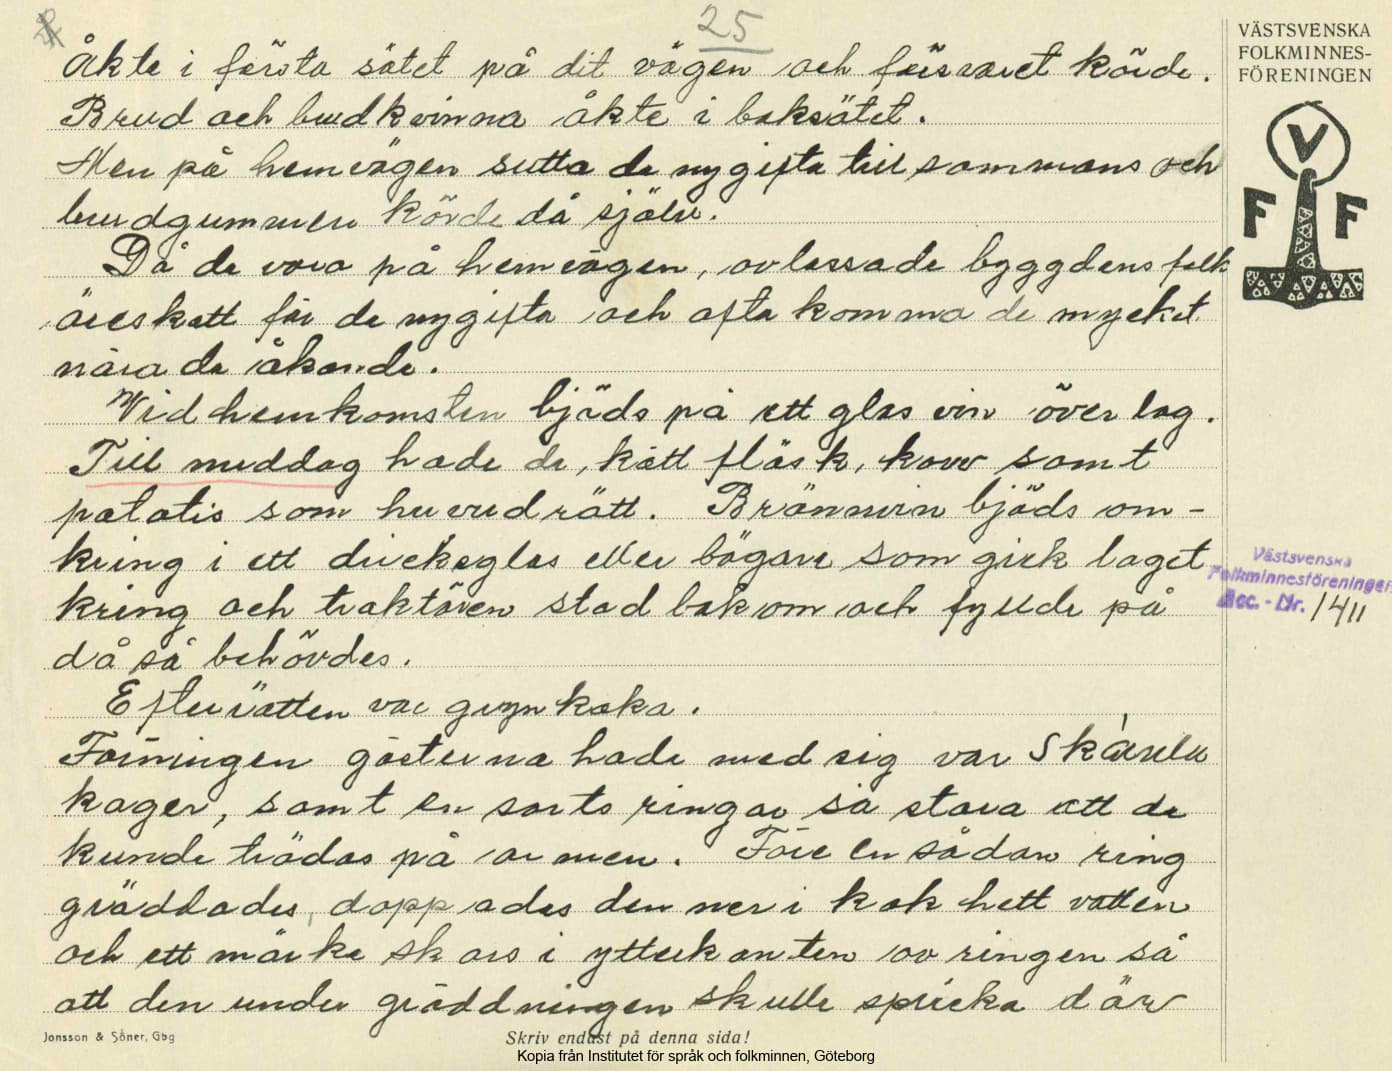 25
Åkte i första sätet på dit vägen och försvaret körde.
Brud och brudkvinna åkte i baksätet.
Men på hemvägen sutto de nygifta tillsammans och
brudgummen körde då själv.
Då de voro på hemvägen, avlossade byggdens folk
äreskott för de nygifta och ofta komma de mycket
nära de åkande.
Vid hemkomsten bjöds på ett glas vin över lag.
Till middag hade de, kött fläsk, korv samt
patatis som huvudrätt. Brännvin bjöds om-
kring i ett dricksglas eller bägare som gick laget
kring och traktören stod bakom och fyllde på
då så behövdes.
Efterrätten var grynkaka.
Förningen gästerna hade med sig var
kager, samt en sorts ringar så stora att de
kunde trädas på armen. Före en sådan ring
gräddades, doppades den ner i kok hett vatten
och ett märke skars i ytterkanten av ringen så
att den under gräddningen skulle spricka där
VÄSTSVENSKA
FOLKMINNES-
FÖRENINGEN
V
F F
Västsvenska
Folkminnesföreningen
Acc. - Nr. 1411
Jonsson & Söner, Gbg
Skriv endast på denna sida!
Kopia från Institutet för språk och folkminnen, Göteborg